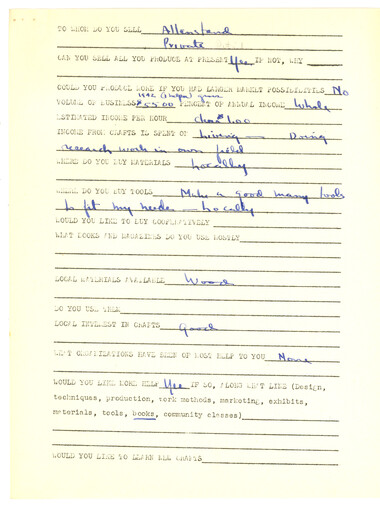 TO WHOM DO YOU SELL Allanstand
Private
CAN YOU SELL ALL YOU PRODUCE AT PRESENT Yes IF NOT, WHY
COULD YOU PRODUCE MORE IF YOU HAD LARGER MARKET POSSIBILITIES No
VOLUME OF BUSINESS $5500 PERCENT OF ANNUAL INCOME Whole
ESTIMATED INCOME PER HOUR $1.00
INCOME FROM CRAFTS IS SPENT ON Living — Doing
research work in own field
WHERE DO YOU BUY MATERIALS Locally
WHERE DO YOU BUY TOOLS Make a good many tools
to fit my needs — Locally
WOULD YOU LIKE TO BUY COOPERATIVELY
WHAT BOOKS AND MAGAZINES DO YOU USE MOSTLY
LOCAL MATERIALS AVAILABLE Wood
DO YOU USE THEM
LOCAL INTEREST IN CRAFTS Good
WHAT ORGANIZATIONS HAVE BEEN OF MOST HELP TO YOU None
WOULD YOU LIKE MORE HELP Yes IF SO, ALONG WHAT LINE (Design,
techniques, production, work methods, marketing, exhibits,
materials, tools, books, community classes)
WOULD YOU LIKE TO LEARN NEW CRAFTS